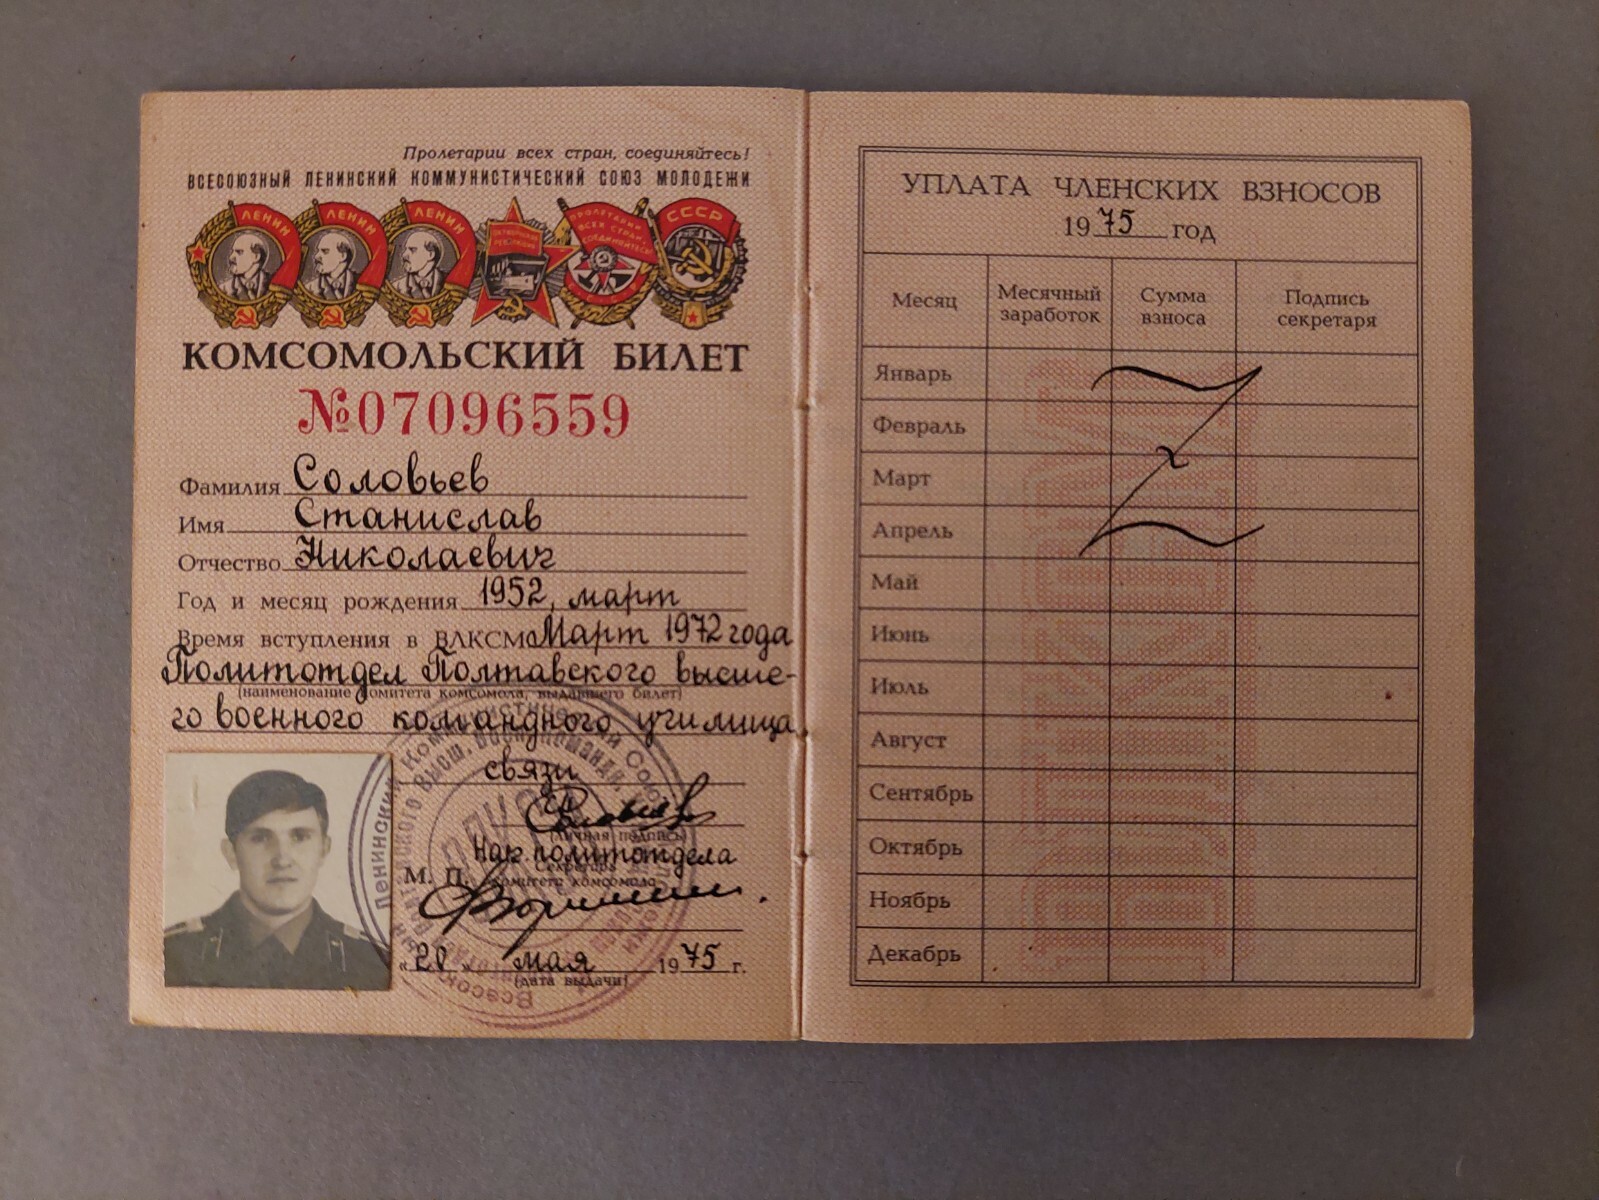 Пролетарии всех стран, соединяйтесь!
ВСЕСОЮЗНЫЙ ЛЕНИНСКИЙ КОММУНИСТИЧЕСКИЙ СОЮЗ МОЛОДЕЖИ
ЛЕНИН ЛЕНИН ЛЕНИН
ОКТЯБРЬСКАЯ РЕВОЛЮЦИЯ
ПРОЛЕТАРИИ ВСЕХ СТРАН, СОЕДИНЯЙТЕСЬ!
СССР
КОМСОМОЛЬСКИЙ БИЛЕТ
№07096559
Фамилия Соловьев
Имя Станислав
Отчество Николаевич
Год и месяц рождения 1952, март
Время вступления в ВЛКСМ Март 1972 года
Политотдел Полтавского высше-
(наименование комитета комсомола, выдавшего билет)
го военного командного училища
связи
(личная подпись)
Нач. политотдела
М. П. Секретарь
комитета комсомола
«20» мая 1975 г.
(дата выдачи)
УПЛАТА ЧЛЕНСКИХ ВЗНОСОВ
1975 год
Месяц Месячный заработок Сумма взноса Подпись секретаря
Январь
Февраль
Март
Апрель
Май
Июнь
Июль
Август
Сентябрь
Октябрь
Ноябрь
Декабрь